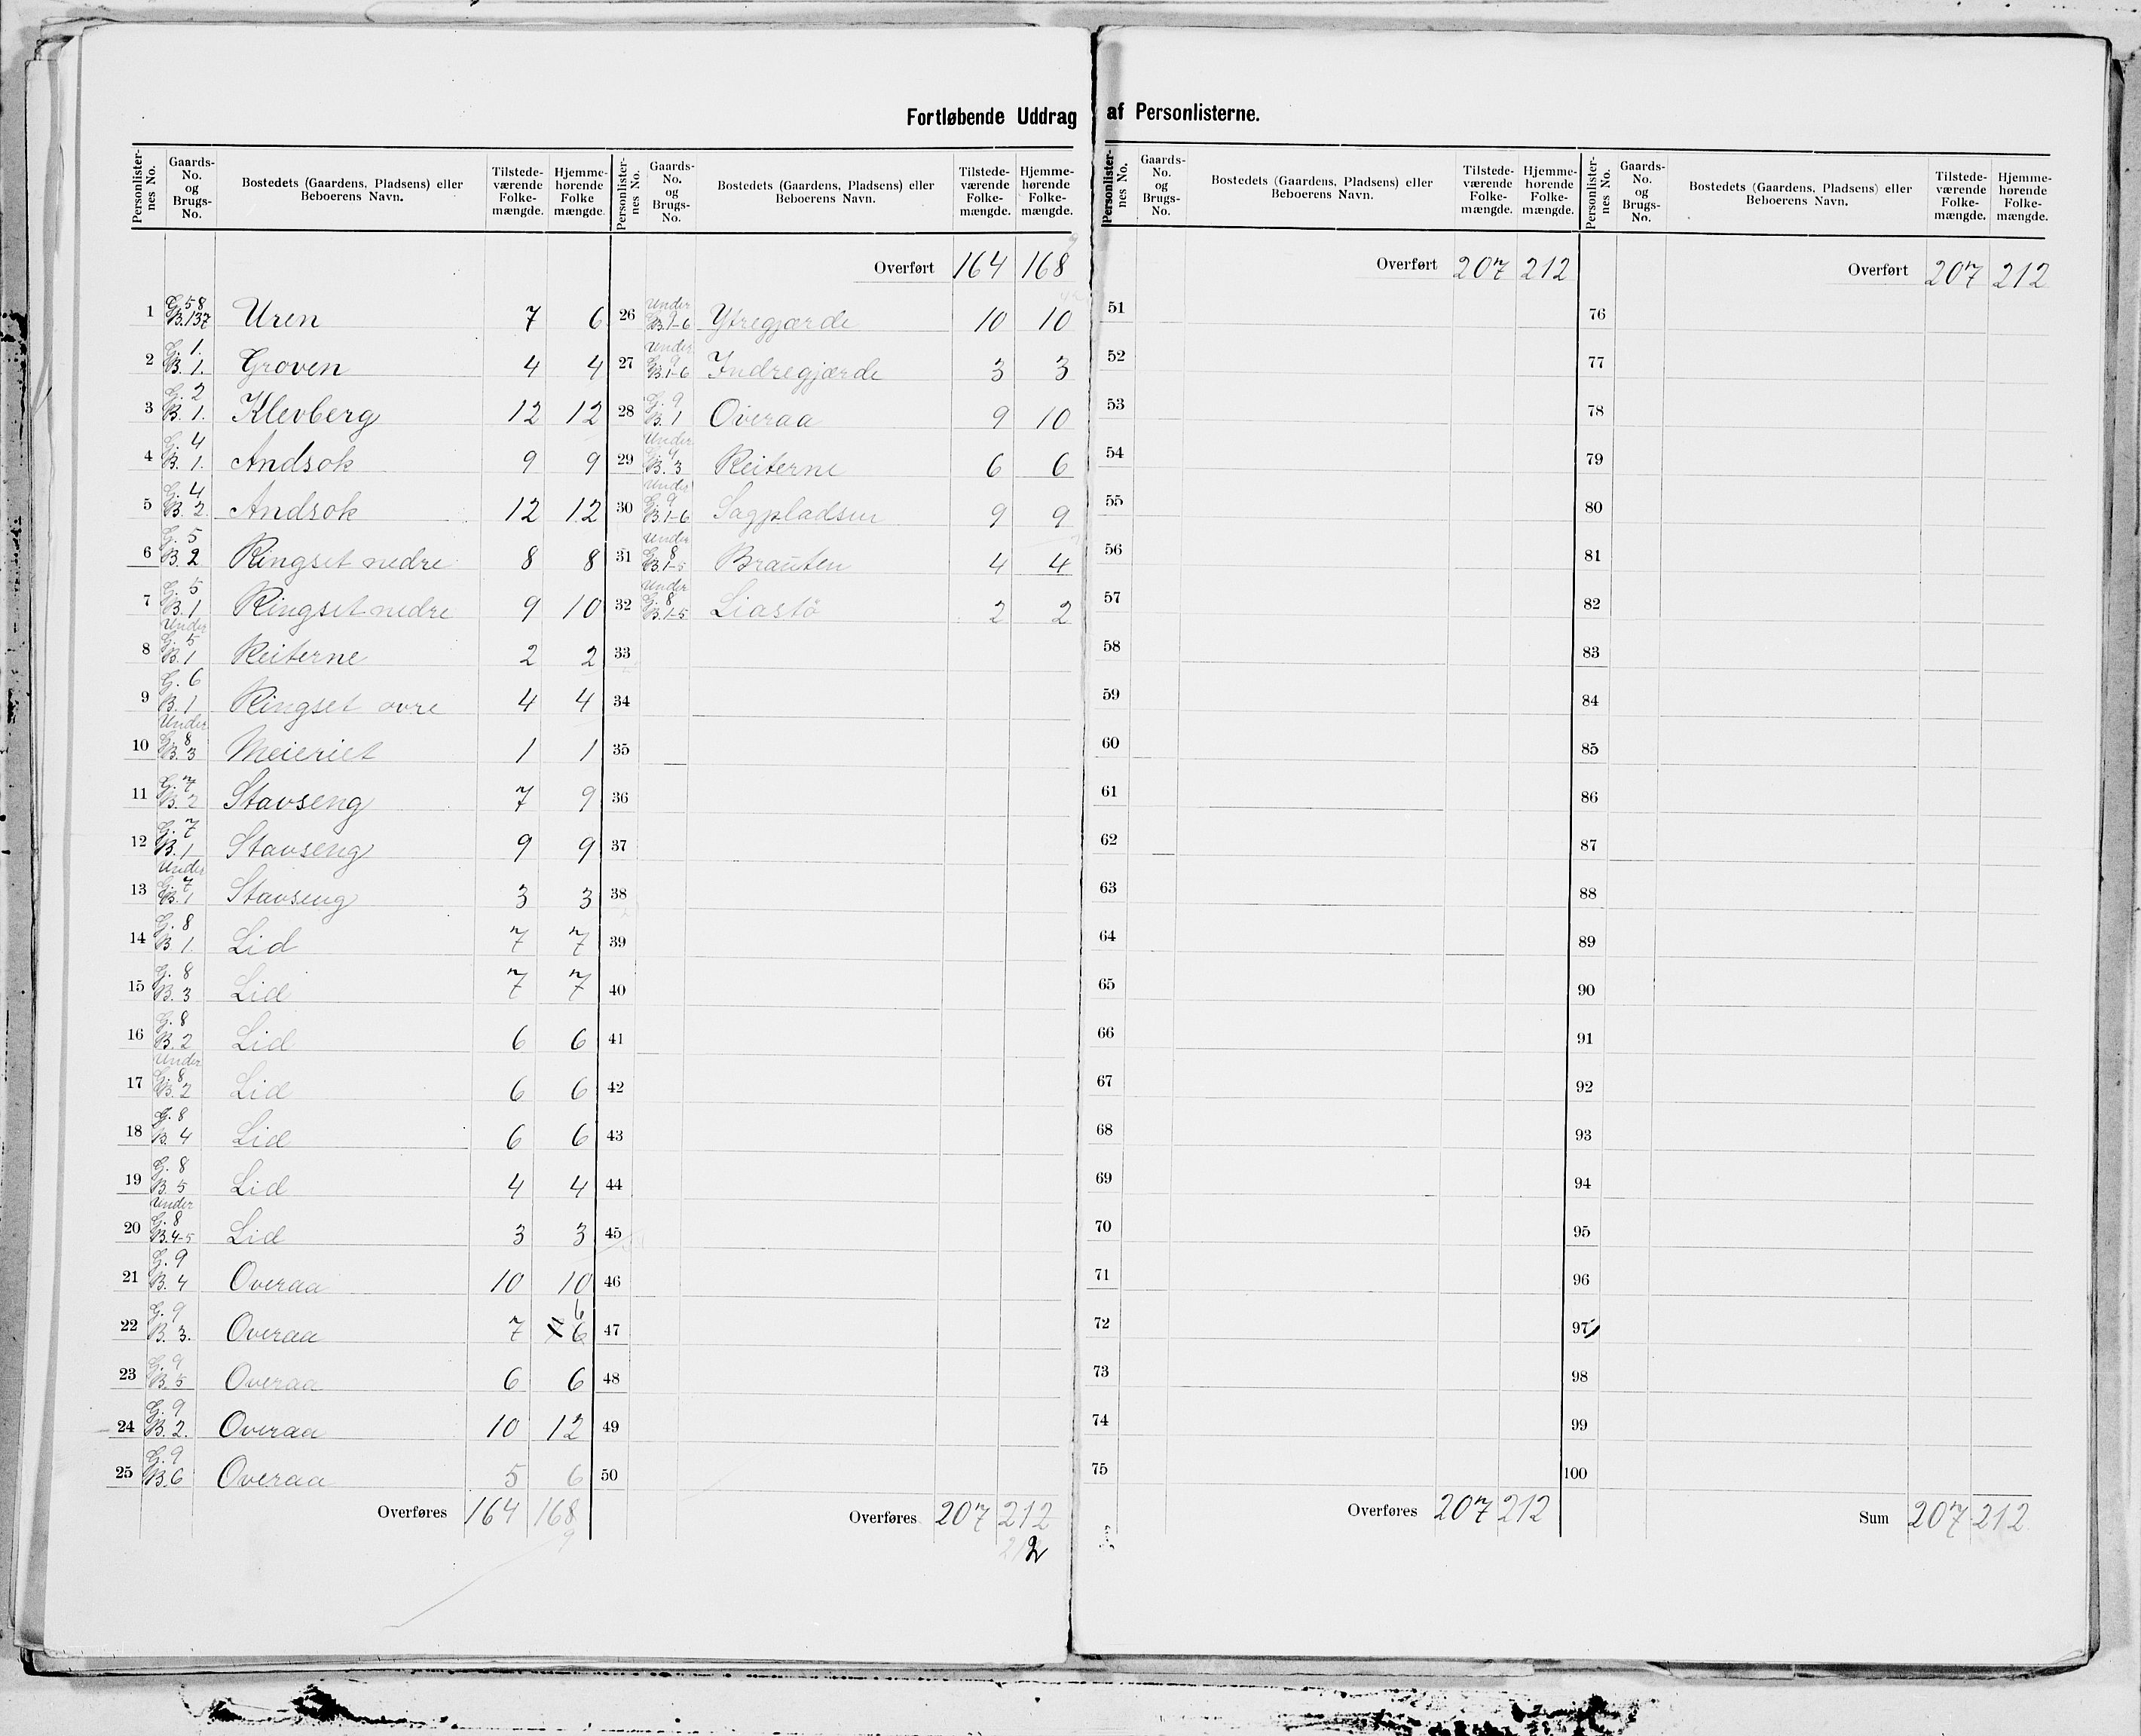 Fortløbende Uddrag af Personlisterne.
Personlister-nes No. | Gaards-No. og Brugs-No. | Bostedets (Gaardens, Pladsens) eller Beboerens Navn. | Tilstede-værende Folke-mængde. | Hjemme-hørende Folke mængde.
1 | G. 58 B. 137 | Uren | 7 | 6
2 | G. 1. B. 1. | Groven | 4 | 4
3 | G. 2 B. 1. | Klevberg | 12 | 12
4 | G. 4 B. 1. | Andsok | 9 | 9
5 | G. 4 B. 2. | Andsok | 12 | 12
6 | G. 5 B. 2 | Ringset nedre | 8 | 8
7 | G. 5 B. 1 | Ringset nedre | 9 | 10
8 | Under G. 5 B. 1 | Reiterne | 2 | 2
9 | G. 6 B. 1 | Ringset øvre | 4 | 4
10 | Under G. 8 B. 3 | Meieriet | 1 | 1
11 | G. 7 B. 2 | Stavseng | 7 | 9
12 | G. 7 B. 1 | Stavseng | 9 | 9
13 | Under G. 7 B. 1 | Stavseng | 3 | 3
14 | G. 8 B. 1. | Lid | 7 | 7
15 | G. 8 B. 3 | Lid | 7 | 7
16 | G. 8 B. 2 | Lid | 6 | 6
17 | Under G. 8 B. 2 | Lid | 6 | 6
18 | G. 8 B. 4 | Lid | 6 | 6
19 | G. 8 B. 5 | Lid | 4 | 4
20 | Under G. 8 B. 4-5 | Lid | 3 | 3
21 | G. 9 B. 4 | Overaa | 10 | 10
22 | G. 9 B. 3. | Overaa | 7 | 6 6
23 | G. 9 B. 5 | Overaa | 6 | 6
24 | G. 9 B. 2. | Overaa | 10 | 12
25 | G. 9 B. 6 | Overaa | 5 | 6
Overføres 164 168
9
Personlister-nes No. | Gaards-No. og Brugs-No. | Bostedets (Gaardens, Pladsens) eller Beboerens Navn. | Tilstede-værende Folke-mængde. | Hjemme-hørende Folke-mængde.
Overført 164 168
26 | Under G. 9 B. 1-6 | Ytregjærde | 10 | 10
27 | Under G. 9 B. 1-6 | Indregjærde | 3 | 3
28 | G. 9 B. 1 | Overaa | 9 | 10
29 | Under G. 4 B. 3 | Reiterne | 6 | 6
30 | Under G. 9 B. 1-6 | Sagpladsen | 9 | 9
31 | Under G. 8 B. 1-5 | Brauten | 4 | 4
32 | Under G. 8 B. 1-5 | Liastø | 2 | 2
33
34
35
36
37
38
39
40
41
42
43
44
45
46
47
48
49
50
Overføres 207 212
212
Personlister-nes No. | Gaards-No. og Brugs-No. | Bostedets (Gaardens, Pladsens) eller Beboerens Navn. | Tilstede-værende Folke-mængde. | Hjemme-hørende Folke-mængde.
Overført 207 212
51
52
53
54
55
56
57
58
59
60
61
62
63
64
65
66
67
68
69
70
71
72
73
74
75
Overføres 207 212
Personlister-nes No. | Gaards-No. og Brugs-No. | Bostedets (Gaardens, Pladsens) eller Beboerens Navn. | Tilstede-værende Folke-mængde. | Hjemme-hørende Folke-mængde.
Overført 207 212
76
77
78
79
80
81
82
83
84
85
86
87
88
89
90
91
92
93
94
95
96
97
98
99
100
Sum 207 212